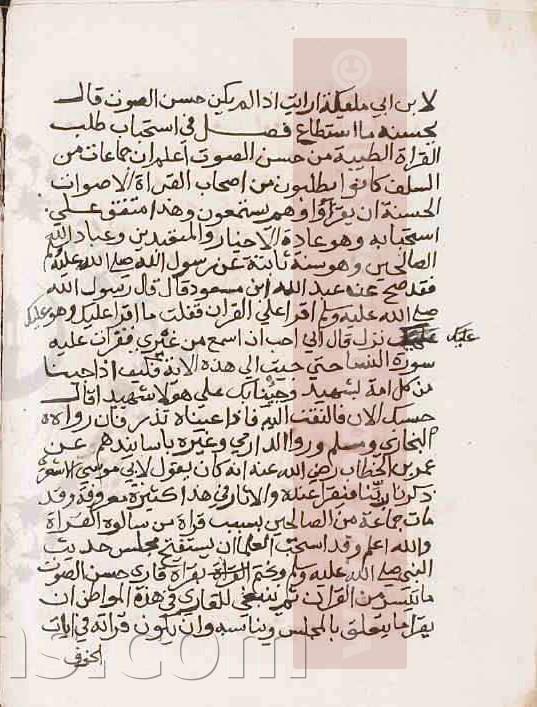 لابن ابي مليكة ارايت اذا لم يكن حسن الصوت قال
يحسنه ما استطاع فصل في استحباب طلب
القراة الطيبة من حسن الصوت اعلم ان جماعات من
السلف كانوا يطلبون من اصحاب القراة الاصوات
الحسنة ان يقرؤا وهم يستمعون وهذا متفق علي
استحبابه وهو عادة الاخيار والمتعبدين وعباد الله
الصالحين وهو سنة ثابتة عن رسول الله صلي الله عليه وسلم
فقد صح عن عبد الله ابن مسعود قال قال رسول الله
صلي الله عليه وسلم اقرا علي القران فقلت ما اقرا عليك وهو عليك
عليك نزل قال اني احب ان اسمع من غيري فقرات عليه
سورة النسا حتي جيت الي هذه الاية فكيف اذا جينا
من كل امة بشهيد وجينا بك علي هولا شهيدا قال
حسبك الان فالتفت اليه فاذا عيناه تذرفان رواه
البخاري ومسلم وروا الدارمي وغيره باسانيدهم عن
عمر بن الخطاب رضي الله عنه انه كان يقول لابي موسي الاشعري
ذكرنا ربنا فيقرا عنده والاثار في هذا كثيرة معروفة وقد
مات جماعة من الصالحين بسبب قراة من سالوه القراة
والله اعلم وقد استحب العلما ان يستفتح مجلس حديث
النبي صلي الله عليه وسلم وختم بقراة قاري حسن الصوت
ما تيسر من القران ثم ينبغي للقاري في هذة المواطن ان
يقرا ما يتعلق بالمجلس ويناسبه وان يكون قراته في ايات
الخوف
ns.com